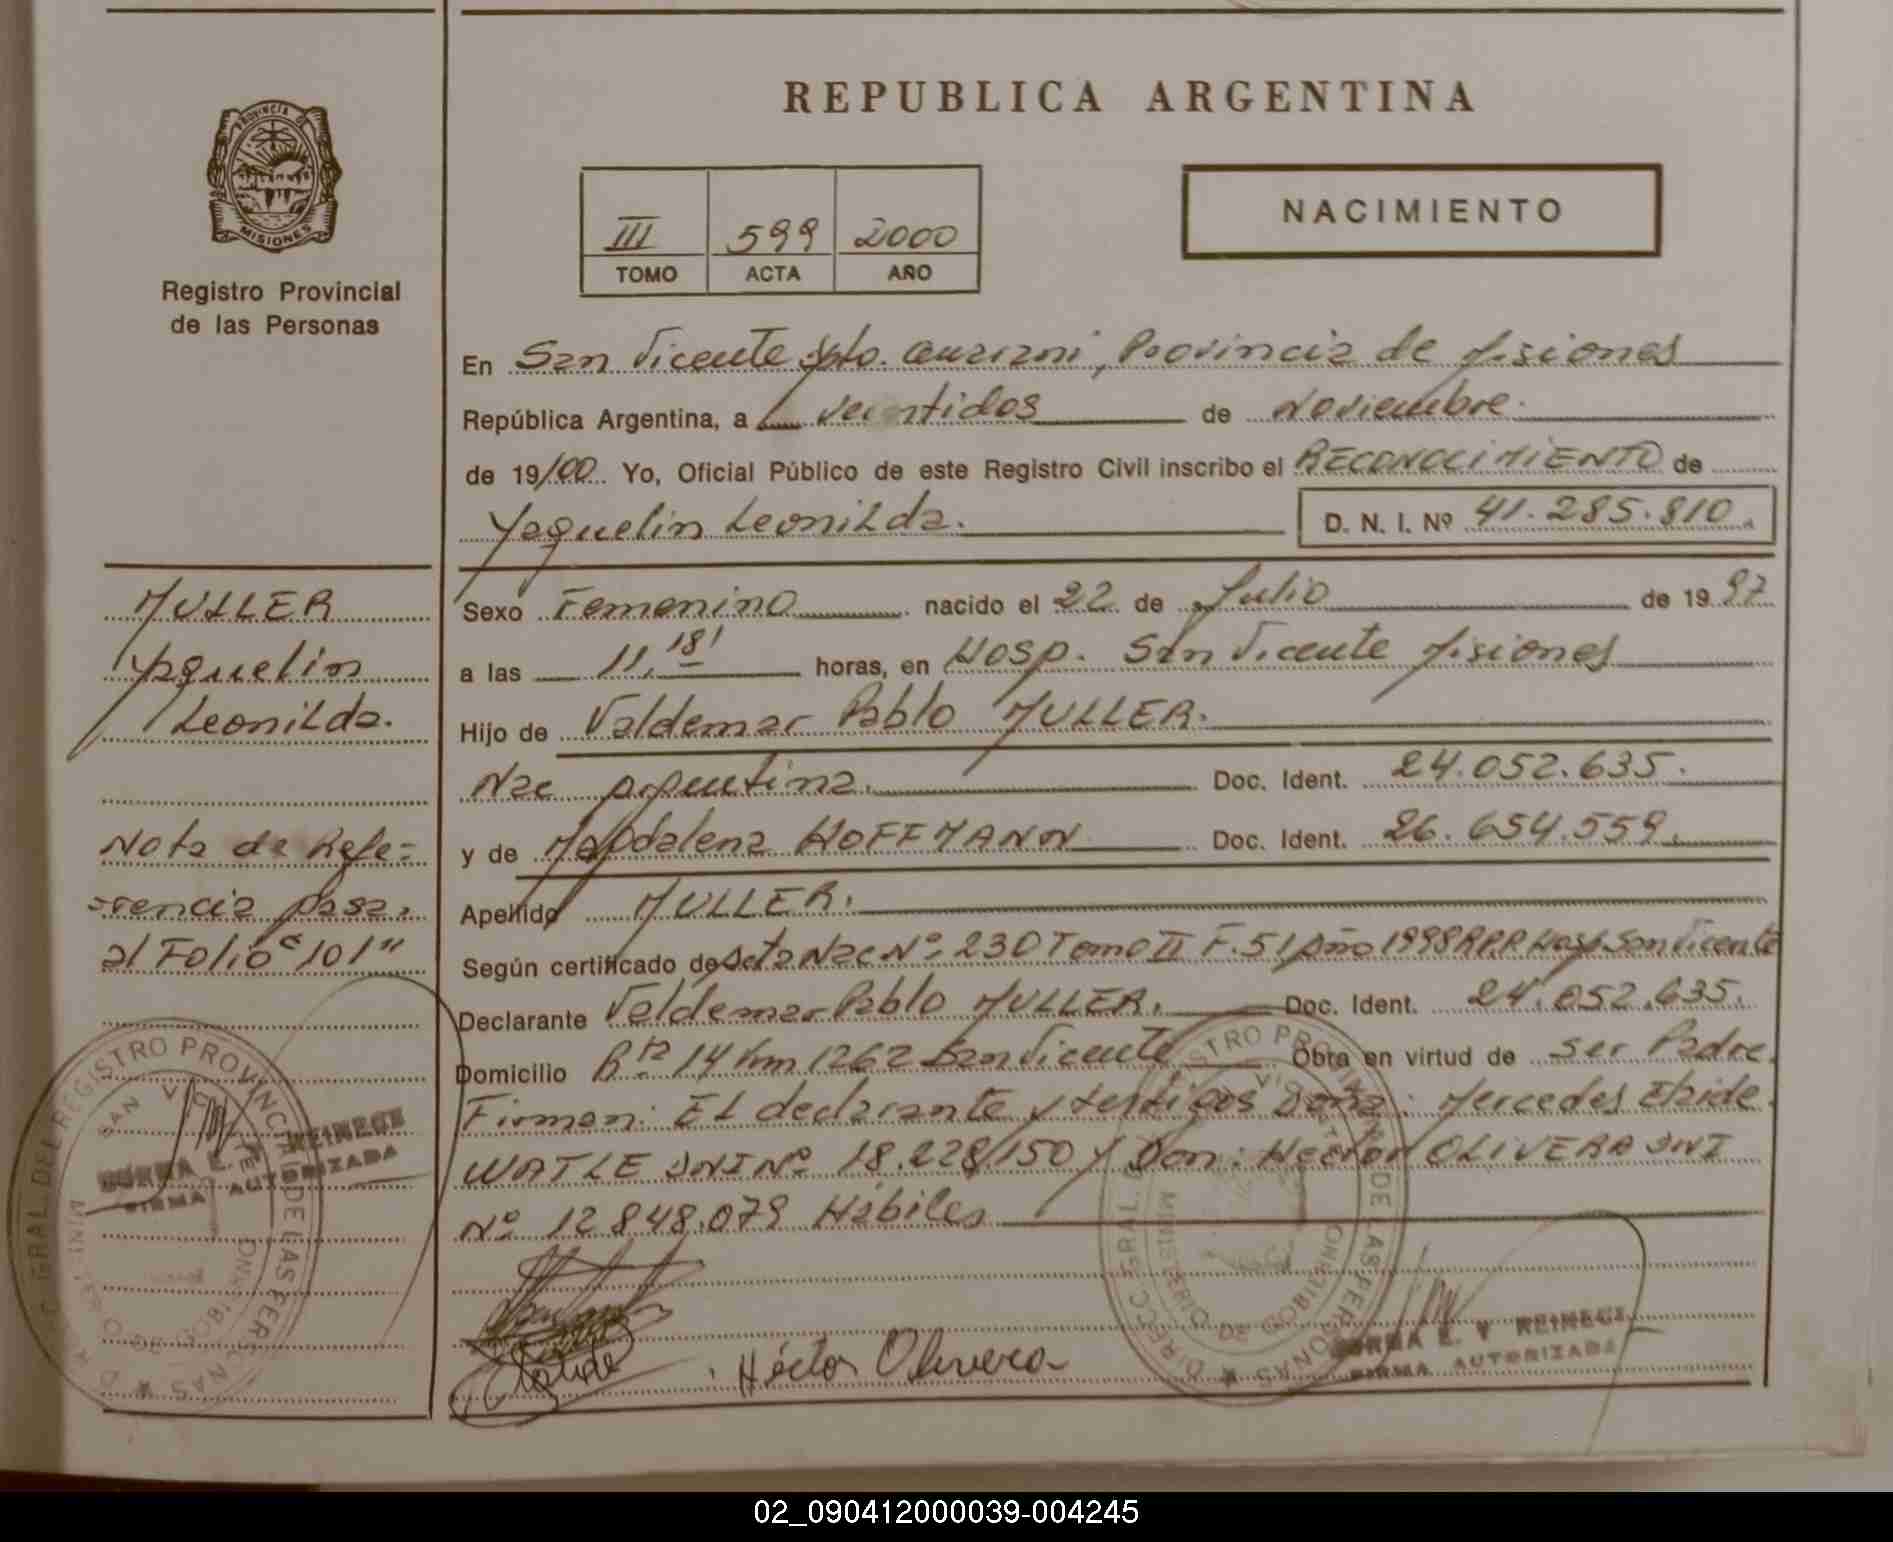 REPUBLICA ARGENTINA
PROVINCIA DE
MISIONES
Registro Provincial
de las Personas
III 599 2000
TOMO ACTA AÑO
NACIMIENTO
En San Vicente Dpto. Guaraní, Provincia de Misiones
República Argentina, a veintidos de Noviembre.
de 19/00 Yo, Oficial Público de este Registro Civil inscribo el RECONOCIMIENTO de
Yaquelin Leonilda. D. N. I. Nº 41.285.810.
MULLER
Yaquelin
Leonilda.
Nota de Refe=
rencia pasa,
al Folio "101"
Sexo Femenino nacido el 22 de Julio de 19 97
a las 11,18' horas, en Hosp. San Vicente Misiones
Hijo de Valdemar Pablo MULLER.
Nac Argentina. Doc. Ident. 24.052.635.
y de Magdalena HOFFMANN Doc. Ident. 26.654.559.
Apellido MULLER.
Según certificado de Acta Nac Nº 230 Tomo II F. 51 Año 1998 R.P.P. Hosp. San Vicente
Declarante Valdemar Pablo MULLER. Doc. Ident. 24.052.635.
Domicilio Rta 14 km 1262 San Vicente Obra en virtud de ser Padre.
Firman: El declarante y testigos Doña: Mercedes Elaide
WATLE DNI Nº 18.228.150 y Don: Hector OLIVERA DNI
Nº 12.848.079 Hábiles
Héctor Olivera
DIRECC. GRAL. DEL REGISTRO PROVINCIAL DE LAS PERSONAS
SAN VICENTE
MINISTERIO DE GOBIERNO
NORMA E. V REINECI
FIRMA AUTORIZADA
DIRECC. GRAL. DEL REGISTRO PROVINCIAL DE LAS PERSONAS
MINISTERIO DE GOBIERNO
NORMA E. V REINECI
FIRMA AUTORIZADA
02_090412000039-004245